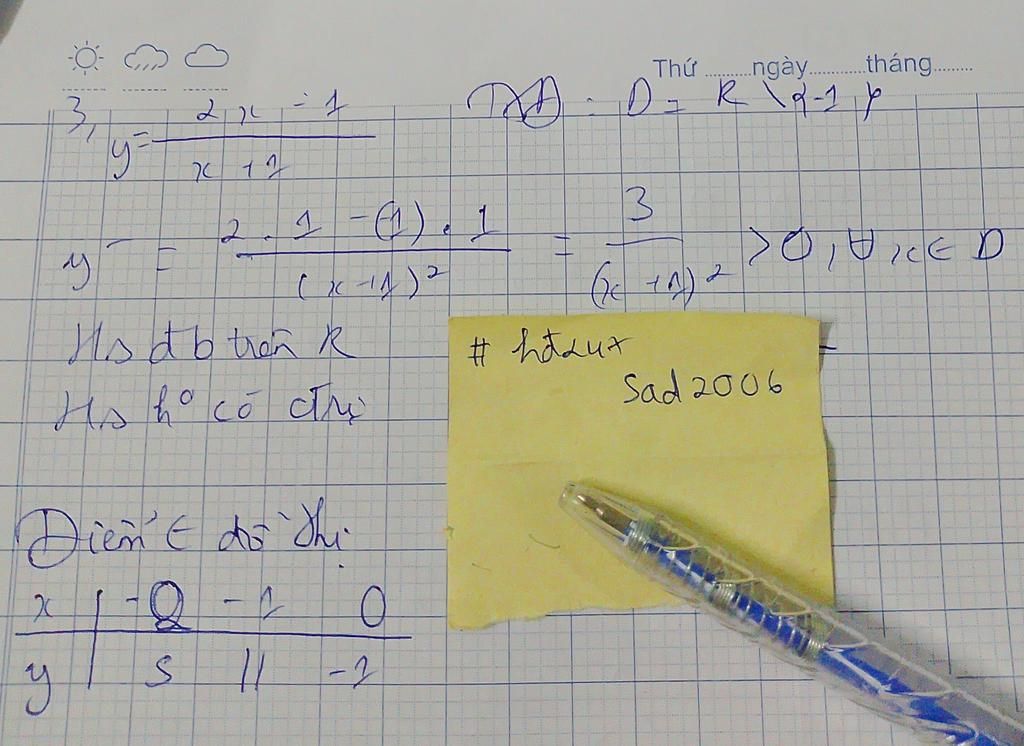 Thứ ngày tháng
3, y = (2x - 1)/(x + 1) TXĐ : D = R \ {-1}
y' = (2 . 1 - (-1) . 1)/(x+1)² = 3/(x+1)² > 0, ∀ x ∈ D
Hs đb trên R
Hs ko có ctrị
# hđ2ux
Sad2006
Điểm ∈ đồ thị
x | -2 -1 0
y | 5 || -1